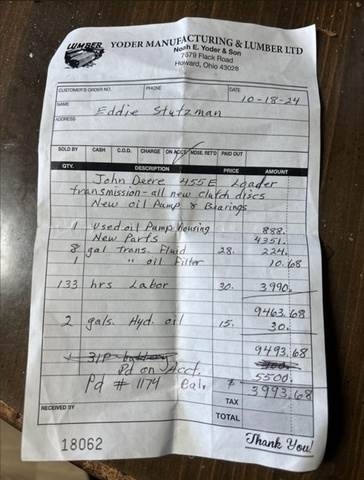 LUMBER
YODER MANUFACTURING & LUMBER LTD
Noah E. Yoder & Son
7679 Flack Road
Howard, Ohio 43028
CUSTOMER'S ORDER NO. PHONE DATE 10-18-24
NAME Eddie Stutzman
ADDRESS
SOLD BY CASH C.O.D. CHARGE ON ACCT. MDSE. RET'D PAID OUT
QTY. DESCRIPTION PRICE AMOUNT
John Deere 455E Loader
transmission - all new clutch discs
New oil Pump & Bearings
1 Used oil Pump housing 888.
New Parts 4351.
8 gal Trans. Fluid 28. 224.
1 " oil Filter 10.68
133 hrs Labor 30. 3990.
9463.68
2 gals. Hyd. oil 15. 30.
9493.68
Pd on Acct. 5500.
Pd # 1174 Bal. $ 3993.68
TAX
RECEIVED BY TOTAL
18062 Thank You!